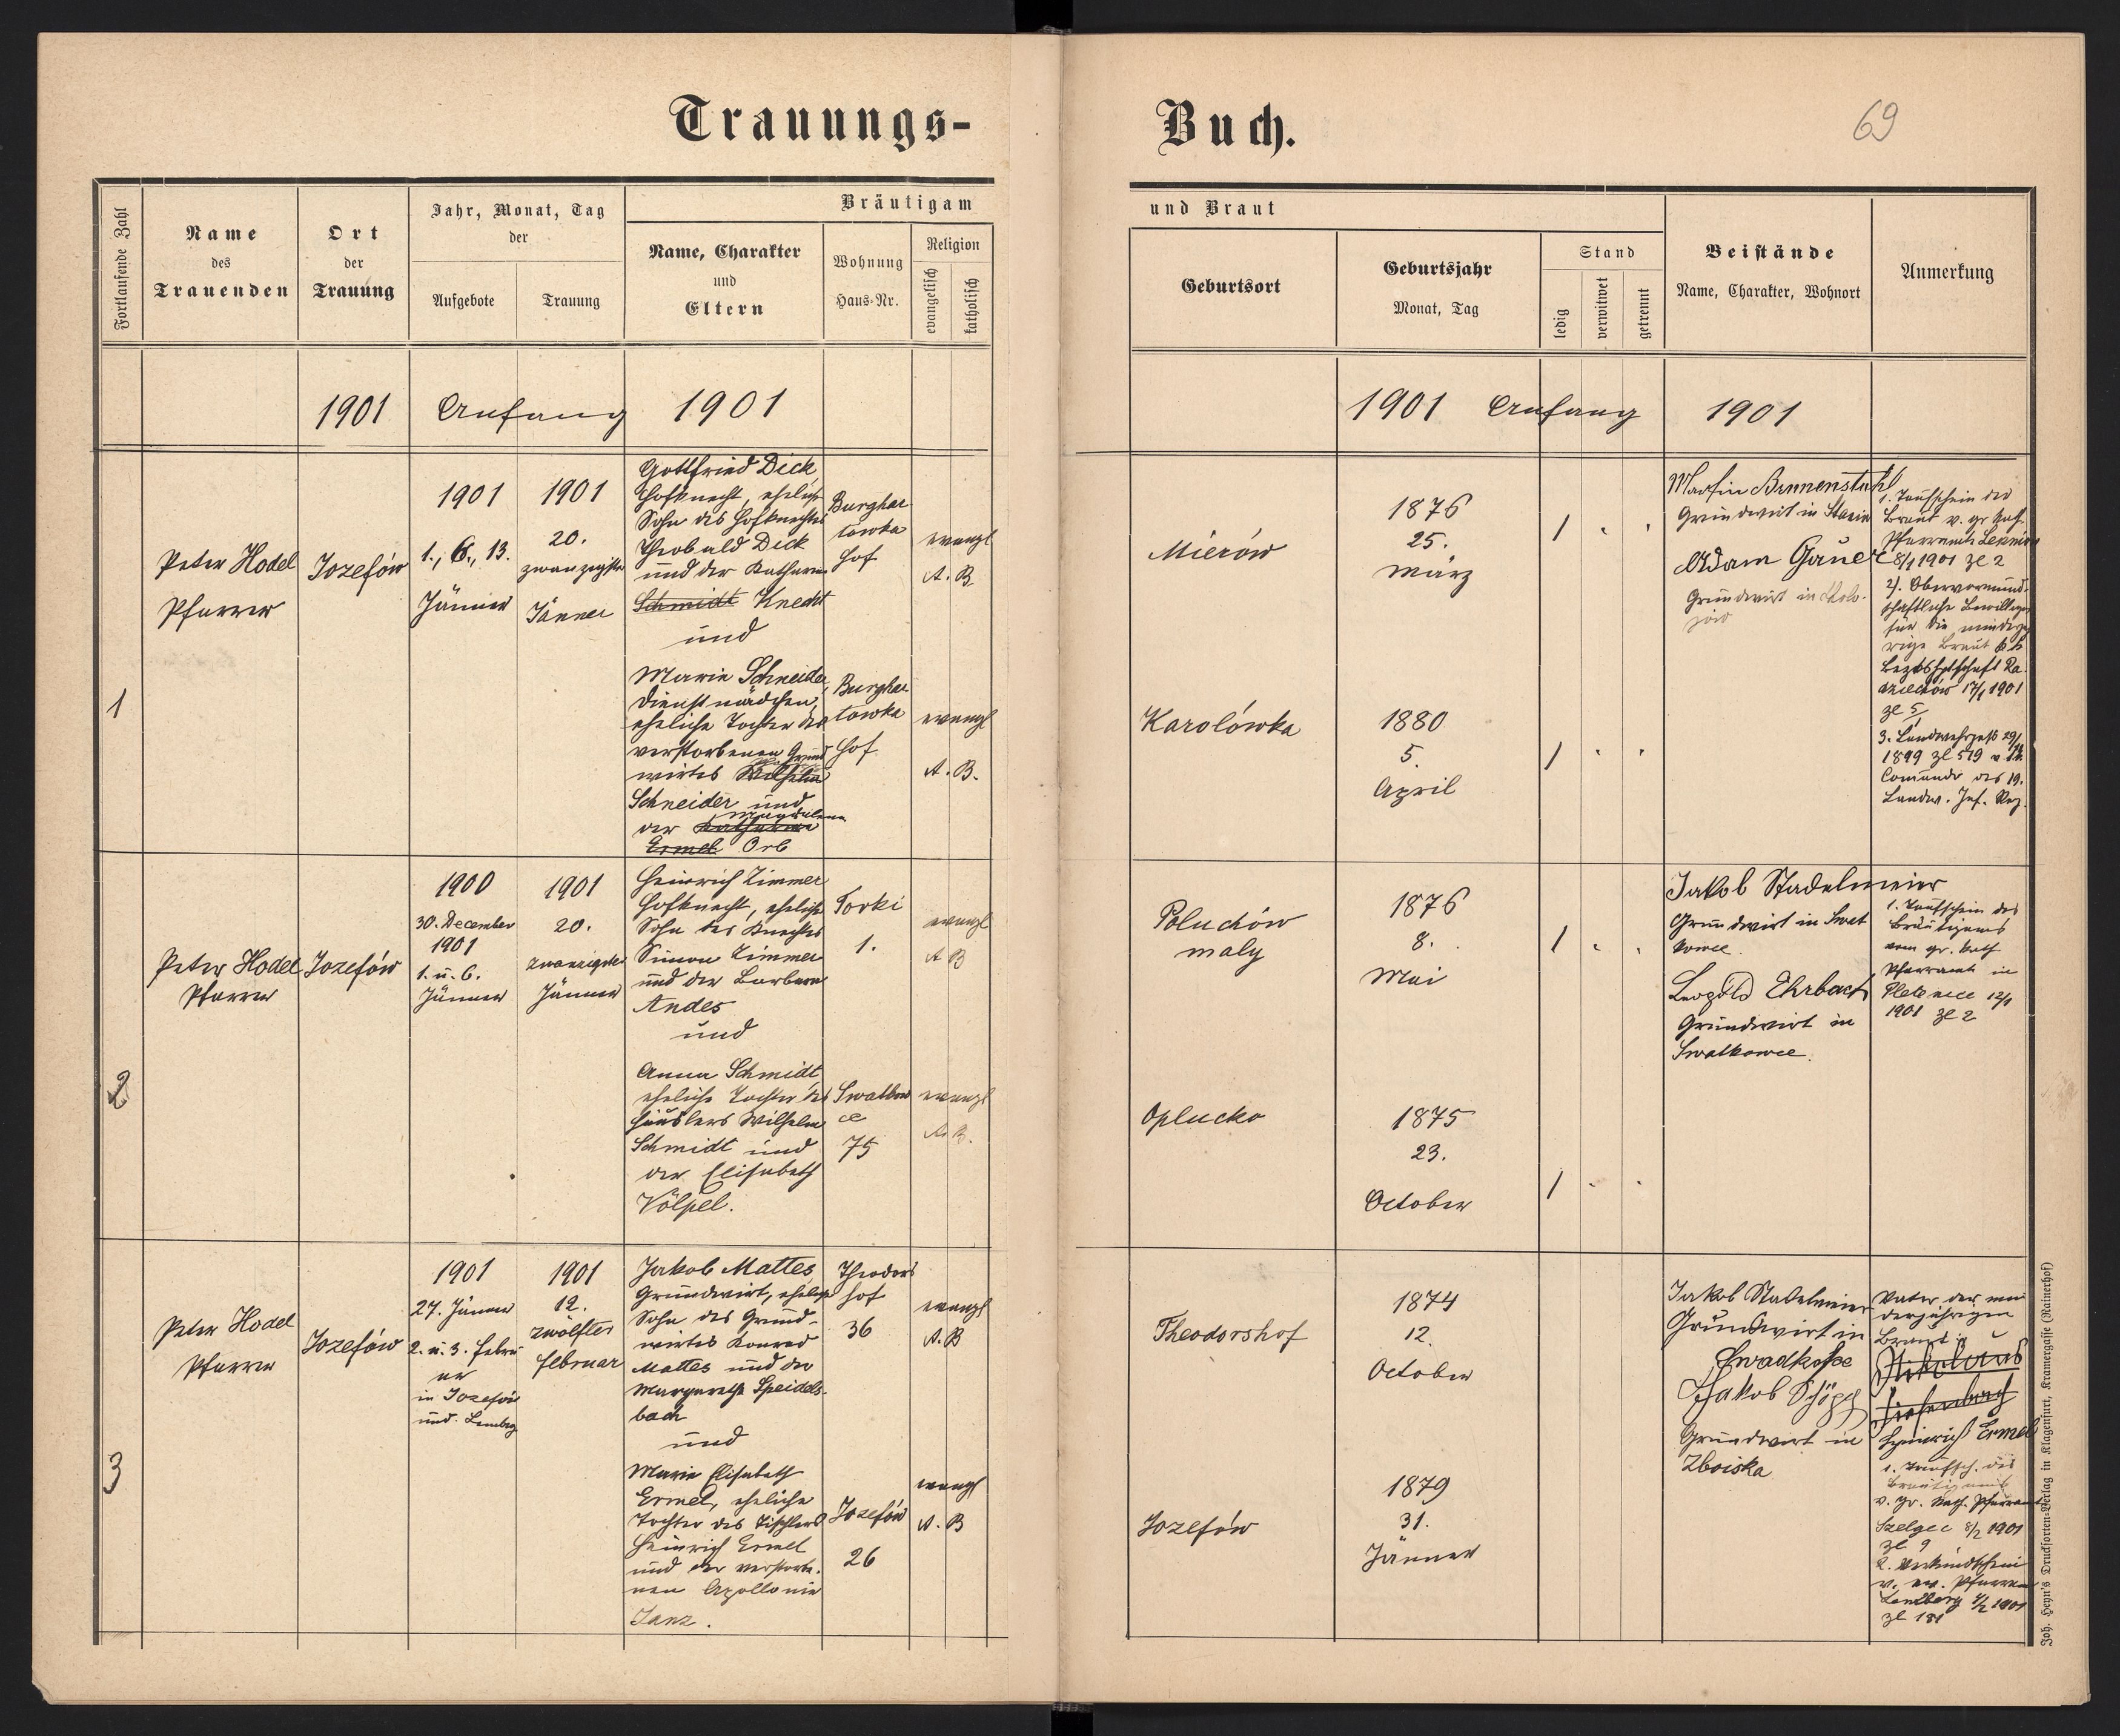 Trauungs-
Buch.
69
Fortlaufende Zahl
Name
des
Trauenden
Ort
der
Trauung
Jahr, Monat, Tag
der
Aufgebote
Trauung
Bräutigam
Name, Charakter
und
Eltern
Wohnung
Haus-Nr.
Religion
evangelisch
katholisch
und Braut
Geburtsort
Geburtsjahr
Monat, Tag
Stand
ledig
verwitwet
getrennt
Beistände
Name, Charakter, Wohnort
Anmerkung
1901 Anfang 1901
1901 Anfang 1901
1
Peter Hodel
Pfarrer
Jozefów
1901
1., 6., 13.
Jänner
1901
20.
zwanzigster
Jänner
Gottfried Dick
Hofknecht, ehelich
Sohn des Hofknechtes
Theobald Dick
und der Katharina
Schmidt Knecht
und
Marie Schneider
Dienstmädchen,
eheliche Tochter des
verstorbenen Grund
wirtes
Schneider und
Magdalena
der Katharina
Ermel Orb
Burghar
towka
Hof
Burghar
towka
Hof
evangl
A. B.
evangl
A. B.
Mierów
Karolówka
1876
25.
März
1880
5.
April
/
/
Martin Brunnenstuhl
Grundwirt in Stanin
Adam Gauer
Grundwirt in
1. Taufschein der
Braut v. gr. kath.
Pfarramte
8/1 1901 Zl 2
2). Obervormund-
schaftliche Bewilligung
für die minderjä
rige Braut
Bezkshptschaft Ra
dziechów 17/1 1901
Zl 5
3. Landwehrpaß 29/
1899 Zl 519 v.
Comando des 19.
Landw. Inf. Reg.
2
Peter Hodel
Pfarrer
Jozefów
1900
30. December
1901
1. u. 6.
Jänner
1901
20.
zwanzigster
Jänner
Heinrich Zimmer
Hofknecht, ehelicher
Sohn des Knechtes
Simon Zimmer
und der Barbara
Andes
und
Anna Schmidt
eheliche Tochter des
Häuslers Wilhelm
Schmidt und
der Elisabeth
Völpel.
Torki
1.
Swatkow
ce
75
evangl
A B
evangl
A. B.
Poluchów
maly
Oplucko
1876
8.
Mai
1875
23.
October
/
/
Jakob Stadelmeier
Grundwirt in Swat
kowce.
Leopold Ehrbach
Grundwirt in
Swatkowce.
1. Taufschein des
Bräutigams
vom gr. kath
Pfarramt in
Pletenice 12/1
1901 Zl 2
3
Peter Hodel
Pfarrer
Jozefów
1901
27. Jänner
2. u. 3. Febru
ar
in Jozefów
und Lemberg
1901
12.
zwölfter
Februar
Jakob Mattes
Grundwirt, ehelicher
Sohn des Grund-
wirtes Konrad
Mattes und der
Margareth Speidels-
bach
und
Marie Elisabeth
Ermel, eheliche
Tochter des Tischlers
Heinrich Ermel
und der verstorbe-
nen Apollonia
Janz.
Theodors
hof
36
Jozefów
26
evangl
A. B
evangl
A. B
Theodorshof
Jozefów
1874
12.
October
1879
31.
Jänner
Jakob Stadelmeier
Grundwirt in
Jakob Schöpp
Grundwirt in
Zboiska
Vater der min
derjährigen
Braut:
Nikolaus
Heinrich Ermel
1. Taufsch. des
Bräutigams
v. gr. kath. Pfarramt
8/2 1901
Zl 9
2. Verkündschein
v. ev. Pfarramt
Lemberg 4/2 1901
Zl 181
Joh. Heyn's Drucksorten-Verlag in Klagenfurt, Kramergasse (Rainerhof)